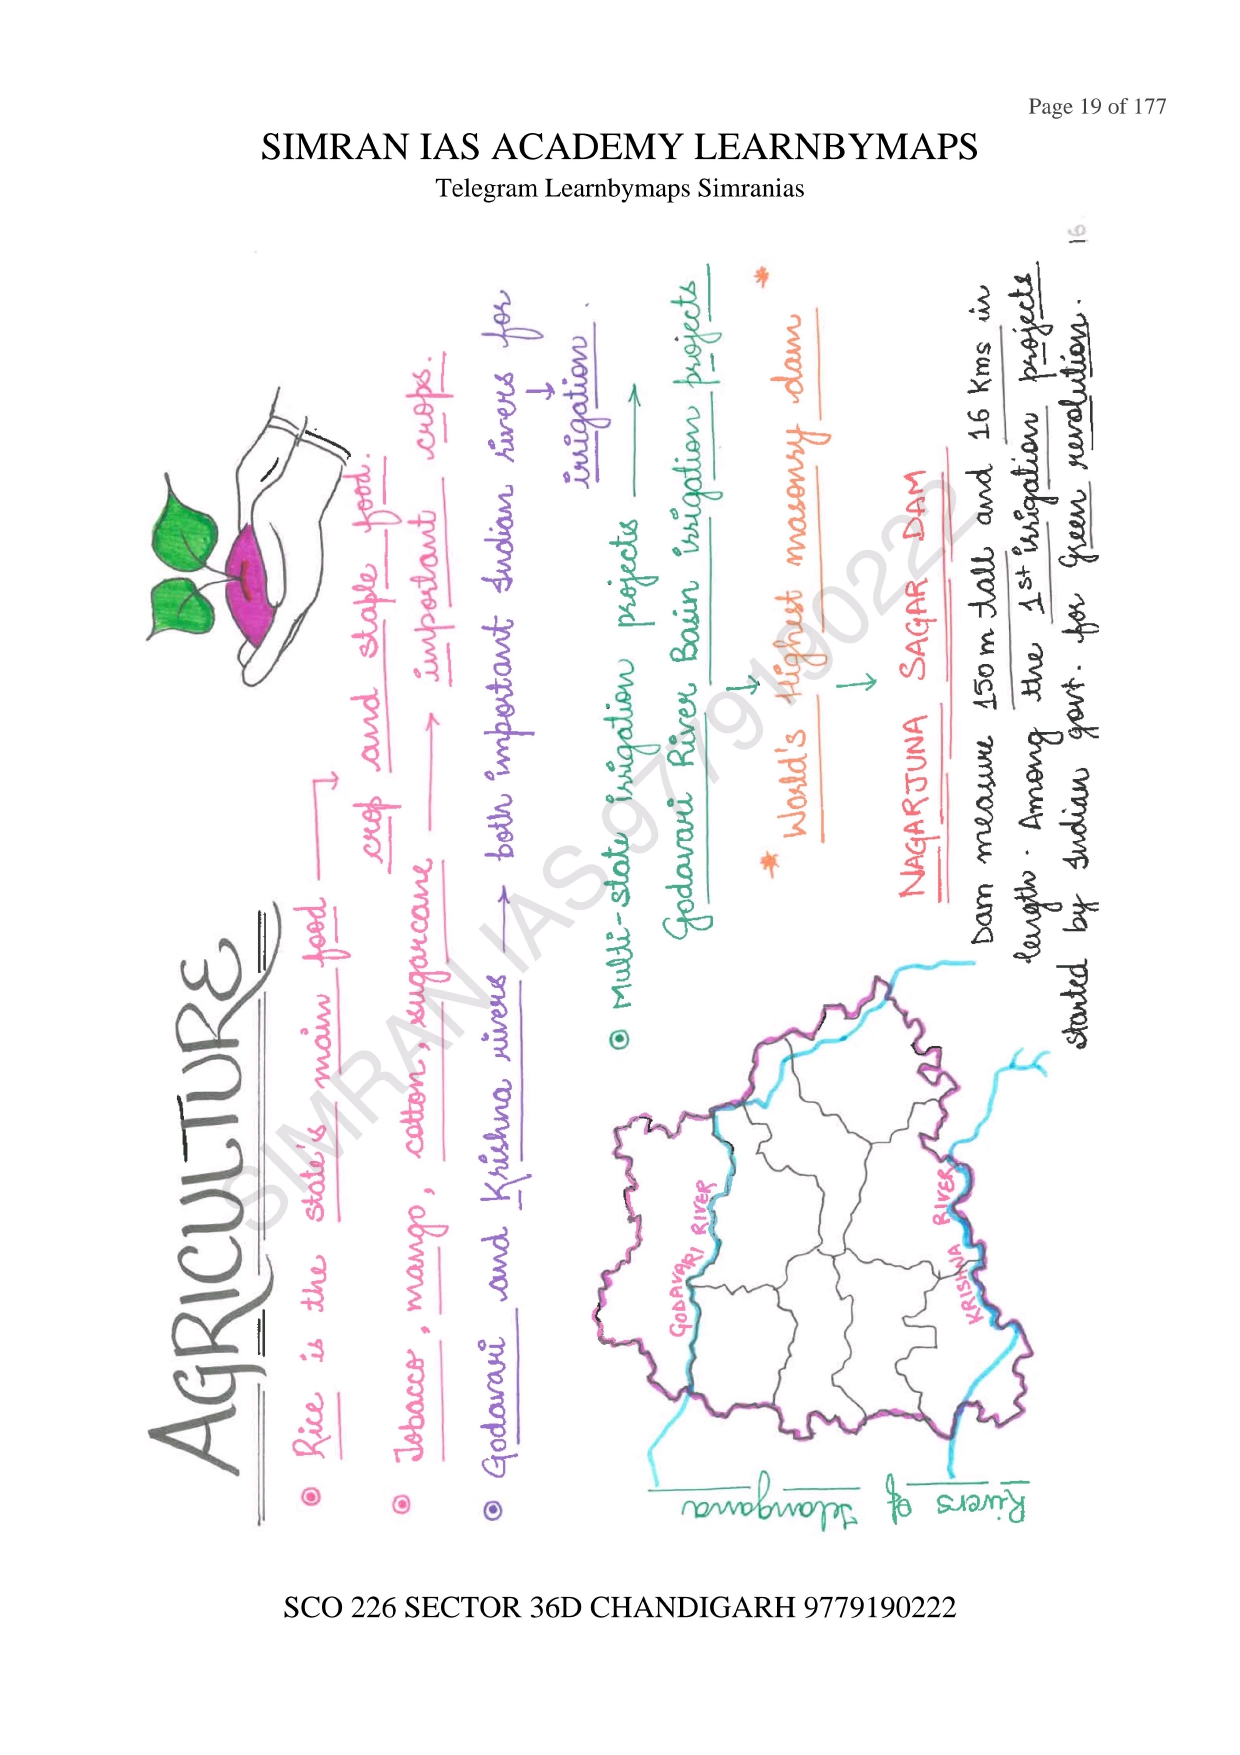 Page 19 of 177
SIMRAN IAS ACADEMY LEARNBYMAPS
Telegram Learnbymaps Simranias
16
AGRICULTURE
Rice is the state's main food →
crop and staple food.
Tobacco, mango, cotton, sugarcane → important crops.
Godavari and Krishna rivers → both important Indian rivers for
↓
irrigation.
Multi-state irrigation projects →
Godavari River Basin irrigation projects
↓
* World's Highest masonry dam *
↓
NAGARJUNA SAGAR DAM
Dam measure 150m tall and 16 Kms in
length. Among the 1st irrigation projects
started by Indian govt. for Green revolution.
GODAVARI RIVER
KRISHNA RIVER
Rivers of Telangana
SIMRAN IAS 9779190222
SCO 226 SECTOR 36D CHANDIGARH 9779190222